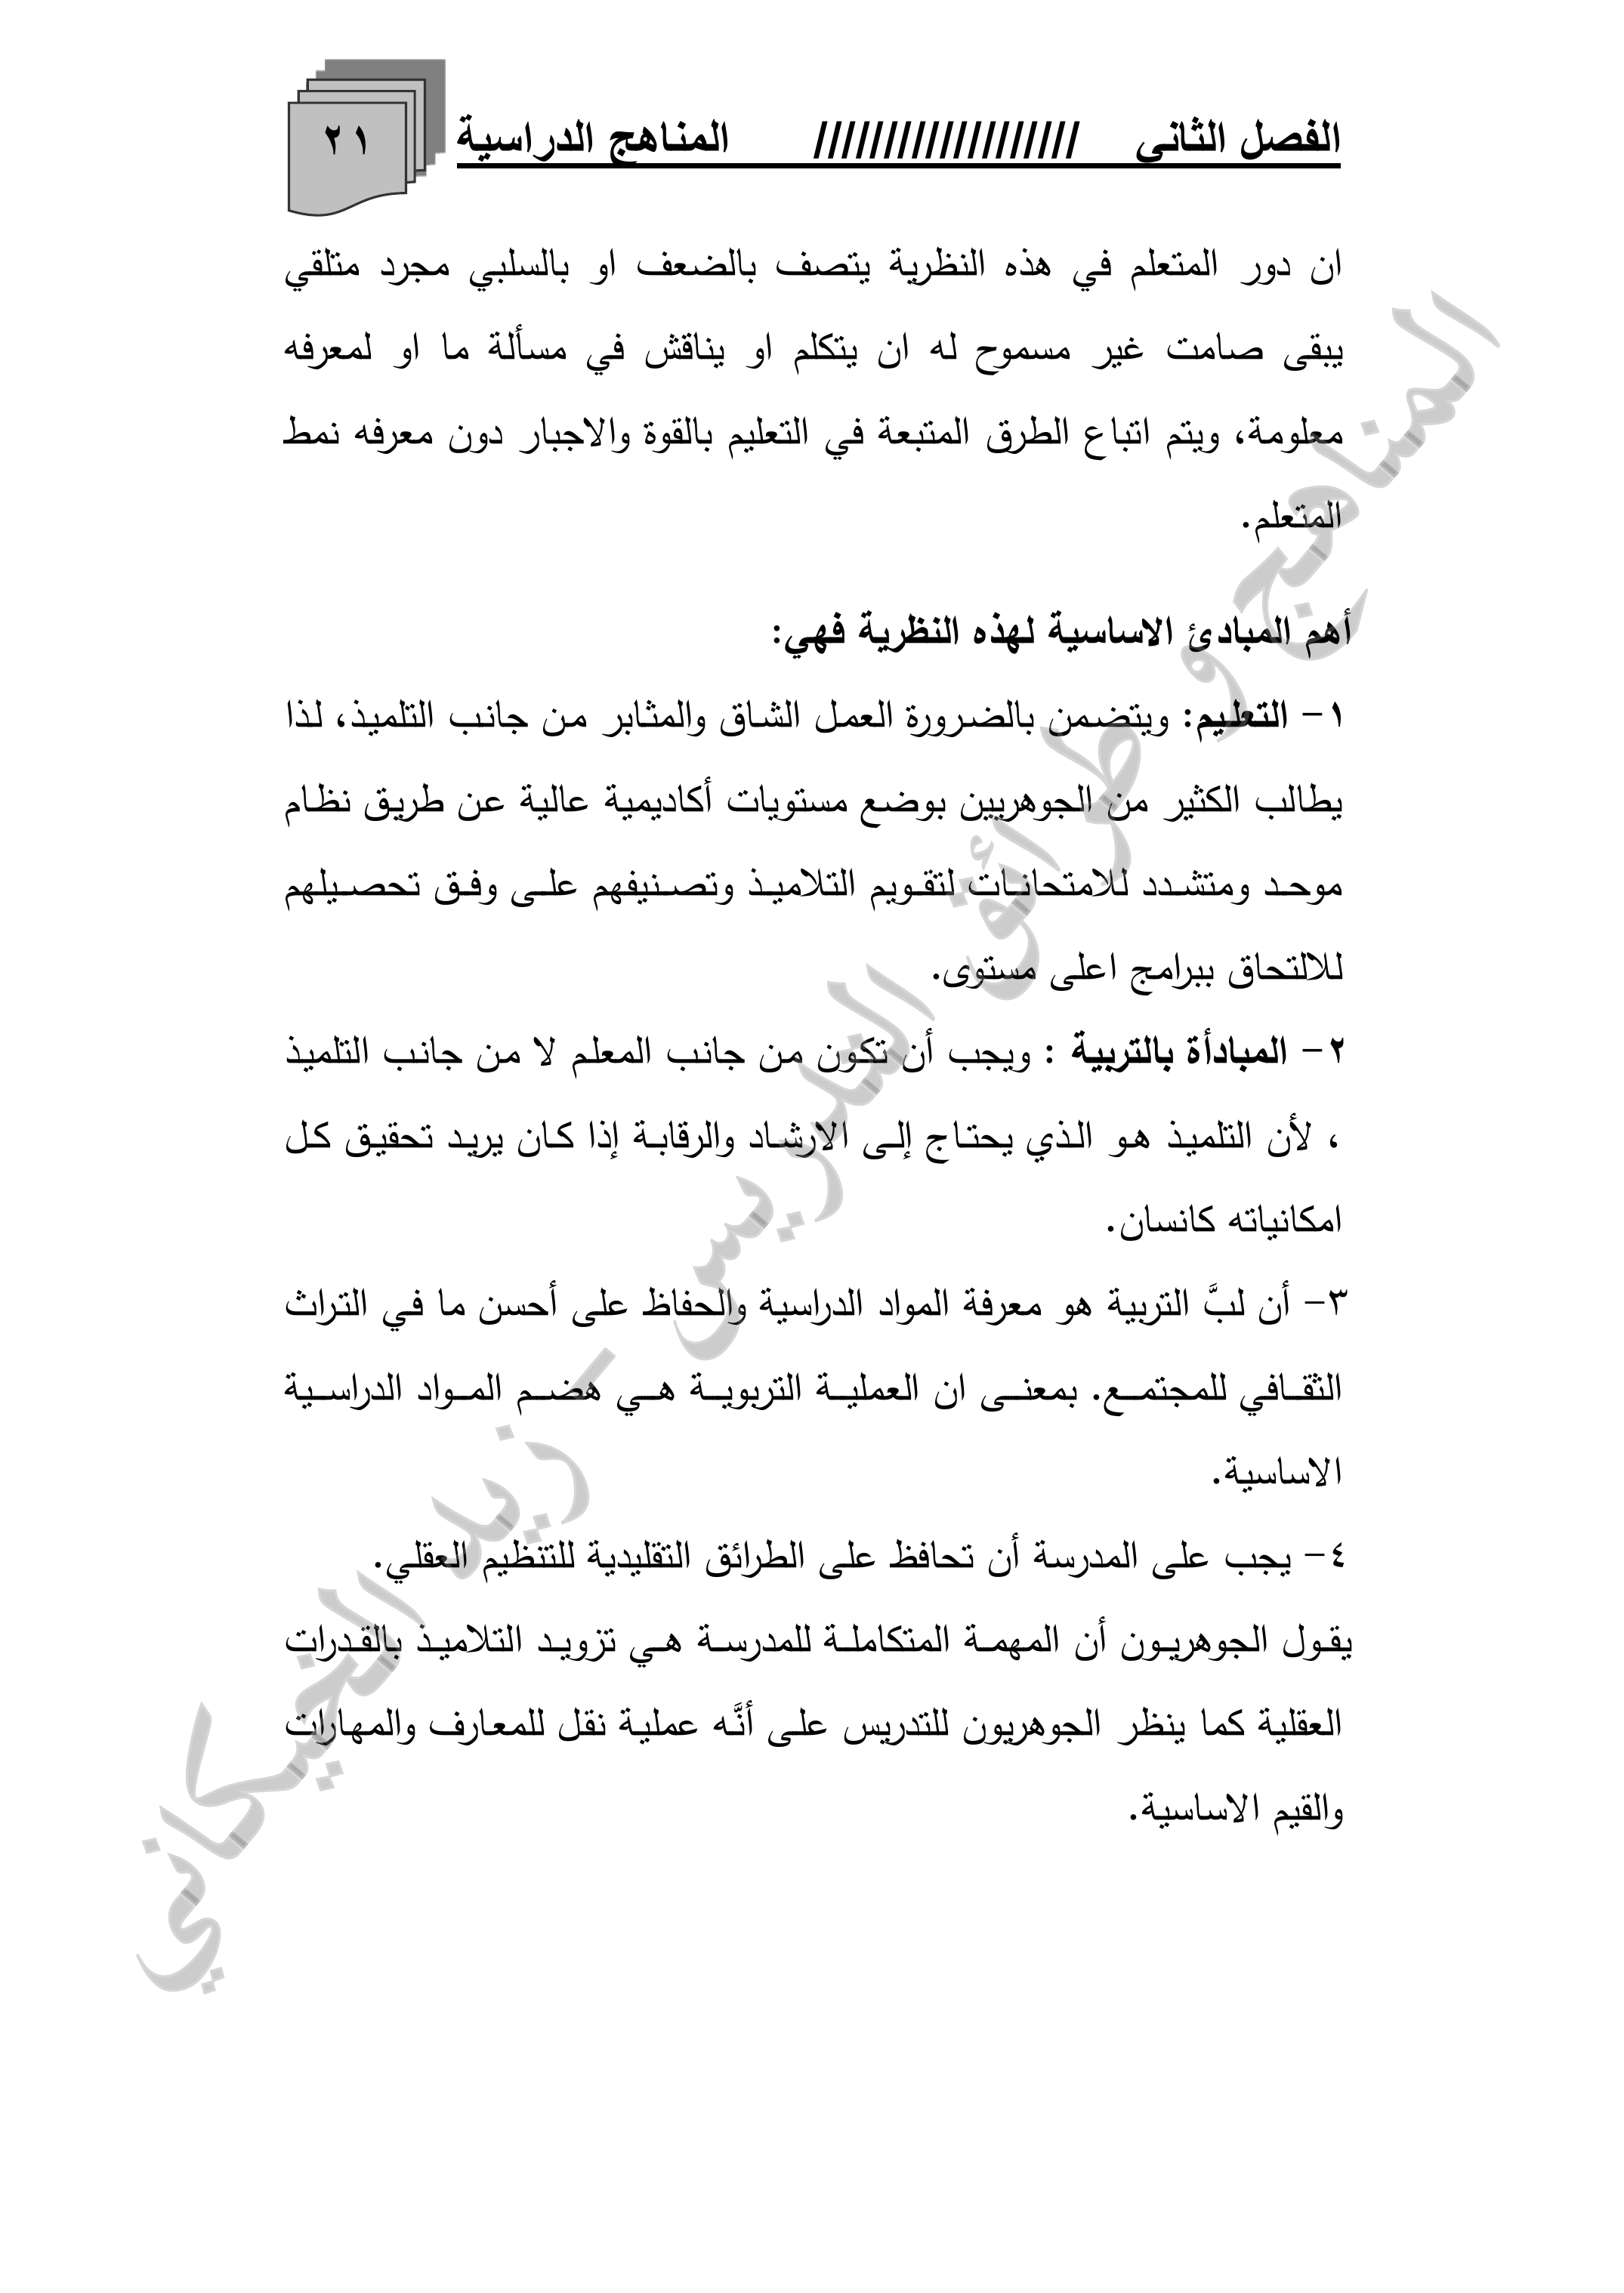 الفصل الثاني /////////////////// المناهج الدراسية ٢١
ان دور المتعلم في هذه النظرية يتصف بالضعف او بالسلبي مجرد متلقي
يبقى صامت غير مسموح له ان يتكلم او يناقش في مسألة ما او لمعرفه
معلومة، ويتم اتباع الطرق المتبعة في التعليم بالقوة والاجبار دون معرفه نمط
المتعلم.
أهم المبادئ الاساسية لهذه النظرية فهي:
١- التعليم: ويتضمن بالضرورة العمل الشاق والمثابر من جانب التلميذ، لذا
يطالب الكثير من الجوهريين بوضع مستويات أكاديمية عالية عن طريق نظام
موحد ومتشدد للامتحانات لتقويم التلاميذ وتصنيفهم على وفق تحصيلهم
للالتحاق ببرامج اعلى مستوى.
٢- المبادأة بالتربية : ويجب أن تكون من جانب المعلم لا من جانب التلميذ
، لأن التلميذ هو الذي يحتاج إلى الارشاد والرقابة إذا كان يريد تحقيق كل
امكانياته كانسان.
٣- أن لبَّ التربية هو معرفة المواد الدراسية والحفاظ على أحسن ما في التراث
الثقافي للمجتمع. بمعنى ان العملية التربوية هي هضم المواد الدراسية
الاساسية.
٤- يجب على المدرسة أن تحافظ على الطرائق التقليدية للتنظيم العقلي.
يقول الجوهريون أن المهمة المتكاملة للمدرسة هي تزويد التلاميذ بالقدرات
العقلية كما ينظر الجوهريون للتدريس على أنَّه عملية نقل للمعارف والمهارات
والقيم الاساسية.
المناهج و طرائق التدريس - زيد الخيكاني